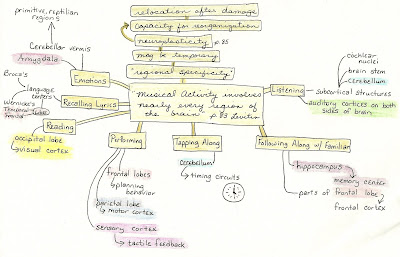 relocation after damage
capacity for reorganization
neuroplasticity p. 85
may be temporary
regional specificity
Musical Activity involves
nearly every region of
the brain p 83 Levitin
primitive, reptilian
regions
Cerebellar vermis
Amygdala
Emotions
Broca's
language
corps
Wernicke's
Recalling Lyrics
Reading
occipital lobe
visual cortex
Performing
frontal lobes
planning
behavior
parietal lobe
motor cortex
sensory cortex
tactile feedback
Tapping Along
Cerebellum
timing circuits
Following Along w/ Familian
hippocampus
memory center
parts of frontal lobe
frontal cortex
Listening
cochlear
nuclei
brain stem
cerebellum
subcortical structures
auditory cortices on both
sides of brain